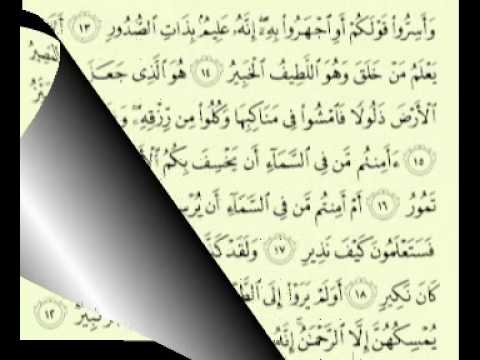 وَأَسِرُّوا۟ قَوْلَكُمْ أَوِ ٱجْهَرُوا۟ بِهِۦٓ إِنَّهُۥ عَلِيمٌۢ بِذَاتِ ٱلصُّدُورِ ١٣
يَعْلَمُ مَنْ خَلَقَ وَهُوَ ٱللَّطِيفُ ٱلْخَبِيرُ ١٤ هُوَ ٱلَّذِى جَعَلَ
ٱلْأَرْضَ ذَلُولًا فَٱمْشُوا۟ فِى مَنَاكِبِهَا وَكُلُوا۟ مِن رِّزْقِهِۦ
١٥ ءَأَمِنتُم مَّن فِى ٱلسَّمَآءِ أَن يَخْسِفَ بِكُمُ
تَمُورُ ١٦ أَمْ أَمِنتُم مَّن فِى ٱلسَّمَآءِ أَن
فَسَتَعْلَمُونَ كَيْفَ نَذِيرِ ١٧ وَلَقَدْ
كَانَ نَكِيرِ ١٨ أَوَلَمْ يَرَوْا۟ إِلَى
١٢
يُمْسِكُهُنَّ إِلَّا ٱلرَّحْمَٰنُ إِنَّهُۥ